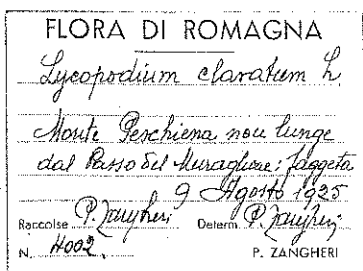 FLORA DI ROMAGNA
Lycopodium clavatum L
Monte Peschiena non lunge
dal Passo del Muraglione: faggeta
9 Agosto 1925
Raccolse P. Zangheri Determ. P. Zangheri
N. 4002. P. ZANGHERI